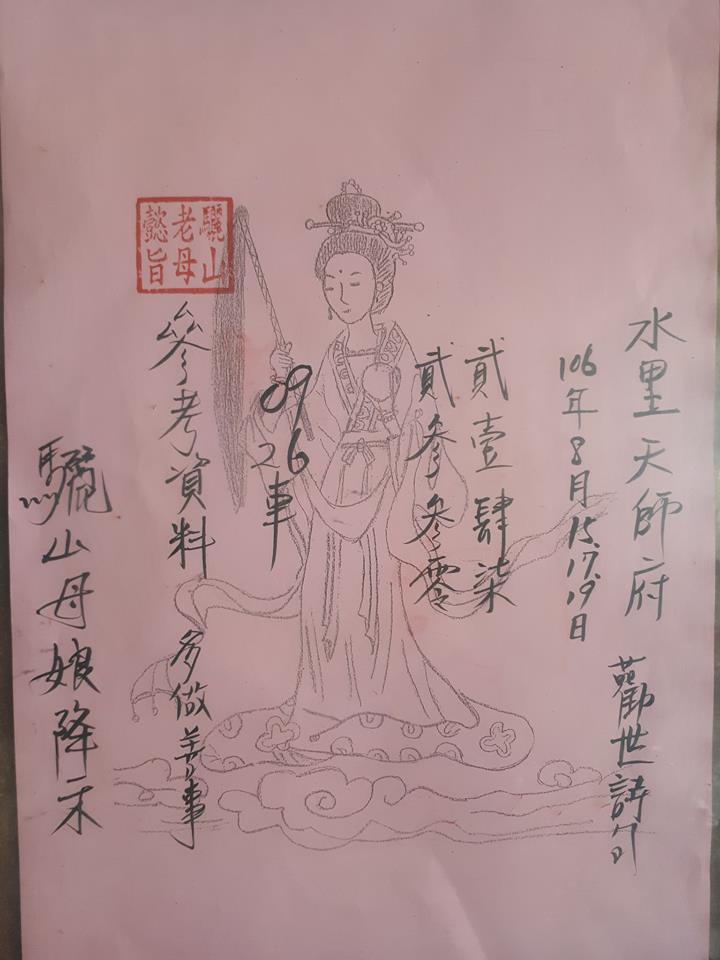 水里天師府 勸世詩句
106年8月15.17.19日
貳壹肆柒
貳參參零
09
26車
驪山
老母
懿旨
參考資料 多做善事
驪山母娘降示